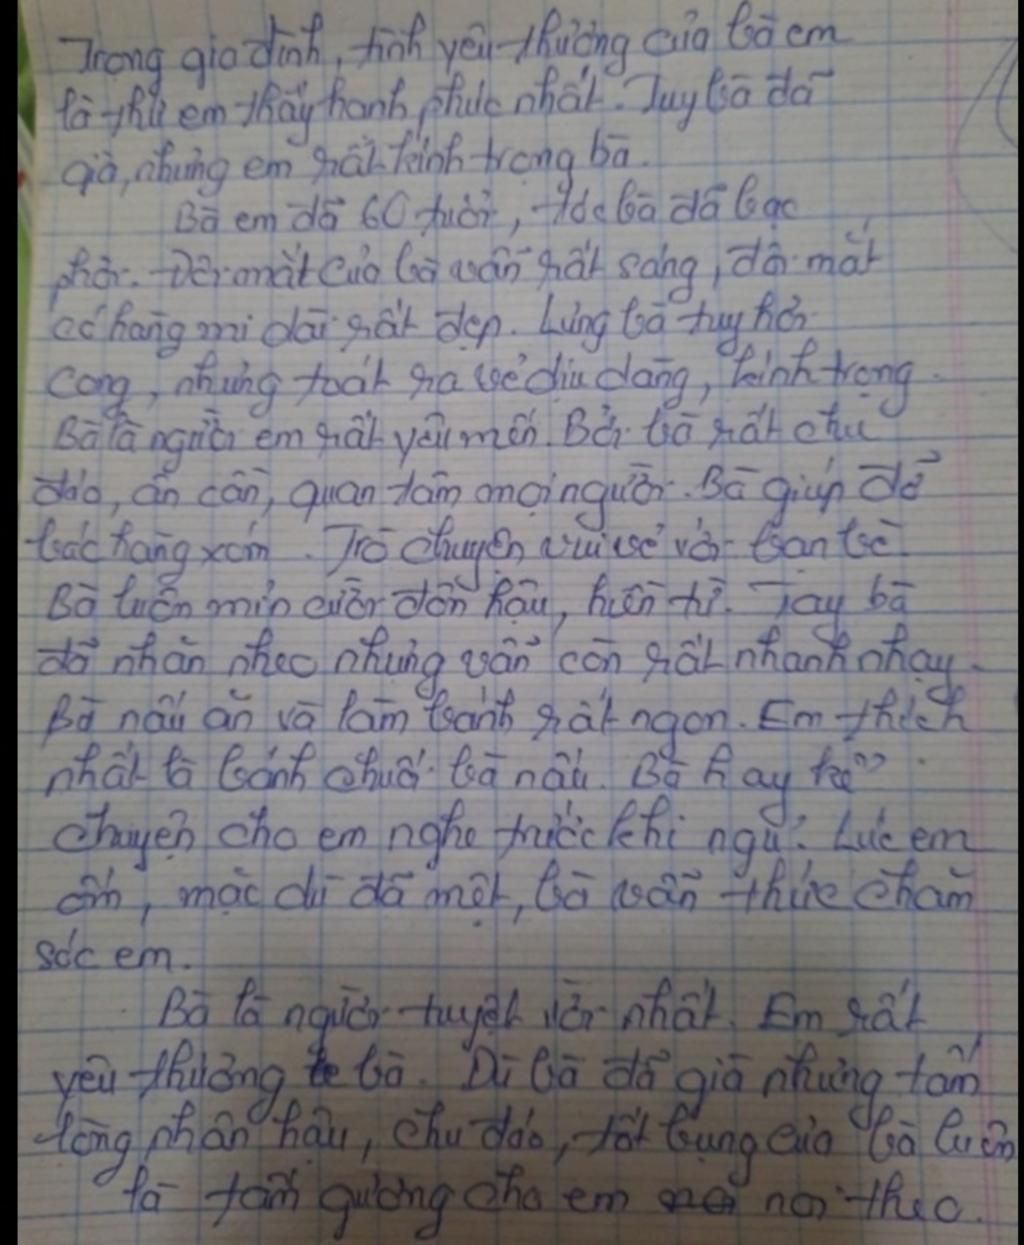 Trong gia đình, tình yêu thương của bà em
là thứ em thấy hạnh phúc nhất. Tuy bà đã
già, nhưng em rất kính trọng bà.
Bà em đã 60 tuổi, tóc bà đã bạc
phơ. Đôi mắt của bà vẫn rất sáng, đôi mắt
có hàng mi dài rất đẹp. Lưng bà tuy hơi
cong, nhưng toát ra vẻ dịu dàng, kính trọng.
Bà là người em rất yêu mến. Bởi bà rất chu
đáo, ân cần, quan tâm mọi người. Bà giúp đỡ
bác hàng xóm. Trò chuyện vui vẻ với bạn bè.
Bà luôn mỉn cười đôn hậu, hiền từ. Tay bà
đã nhăn nheo nhưng vẫn còn rất nhanh nhạy.
Bà nấu ăn và làm bánh rất ngon. Em thích
nhất là bánh chuối bà nấu. Bà hay kể
chuyện cho em nghe trước khi ngủ. Lúc em
ốm, mặc dù đã mệt, bà vẫn thức chăm
sóc em.
Bà là người tuyệt vời nhất. Em rất
yêu thương bà. Dù bà đã già nhưng tấm
lòng nhân hậu, chu đáo, tốt bụng của bà luôn
là tấm gương cho em noi theo.